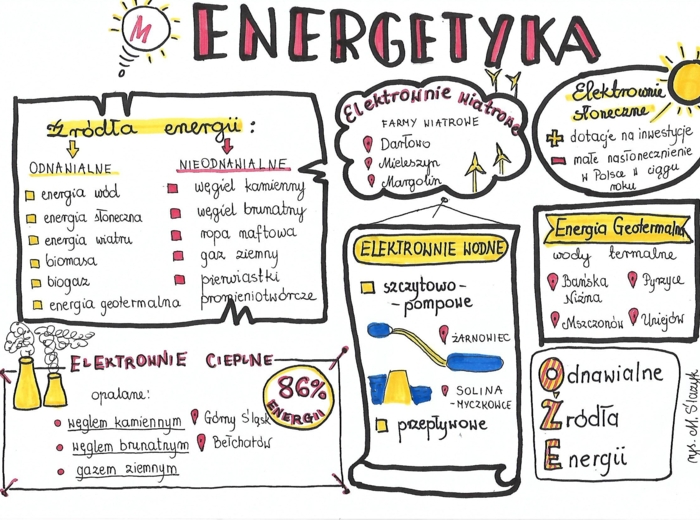 M
ENERGETYKA
Źródła energii:
ODNAWIALNE
energia wód
energia słoneczna
energia wiatru
biomasa
biogaz
energia geotermalna
NIEODNAWIALNE
węgiel kamienny
węgiel brunatny
ropa naftowa
gaz ziemny
pierwiastki
promieniotwórcze
Elektrownie wiatrowe
FARMY WIATROWE
Darłowo
Mieleszyn
Margolin
Elektrownie
słoneczne
dotacje na inwestycje
małe nasłonecznienie
w Polsce w ciągu
roku
ELEKTROWNIE WODNE
szczytowo-
-pompowe
ŻARNOWIEC
SOLINA
-MYCZKOWCE
przepływowe
Energia Geotermalna
wody termalne
Bańska
Niżna
Pyrzyce
Mszczonów
Uniejów
ELEKTROWNIE CIEPLNE
86%
ENERGII
opalane:
węglem kamiennym
Górny Śląsk
węglem brunatnym
Bełchatów
gazem ziemnym
Odnawialne
Źródła
Energii
rys. M. Ślaczyk